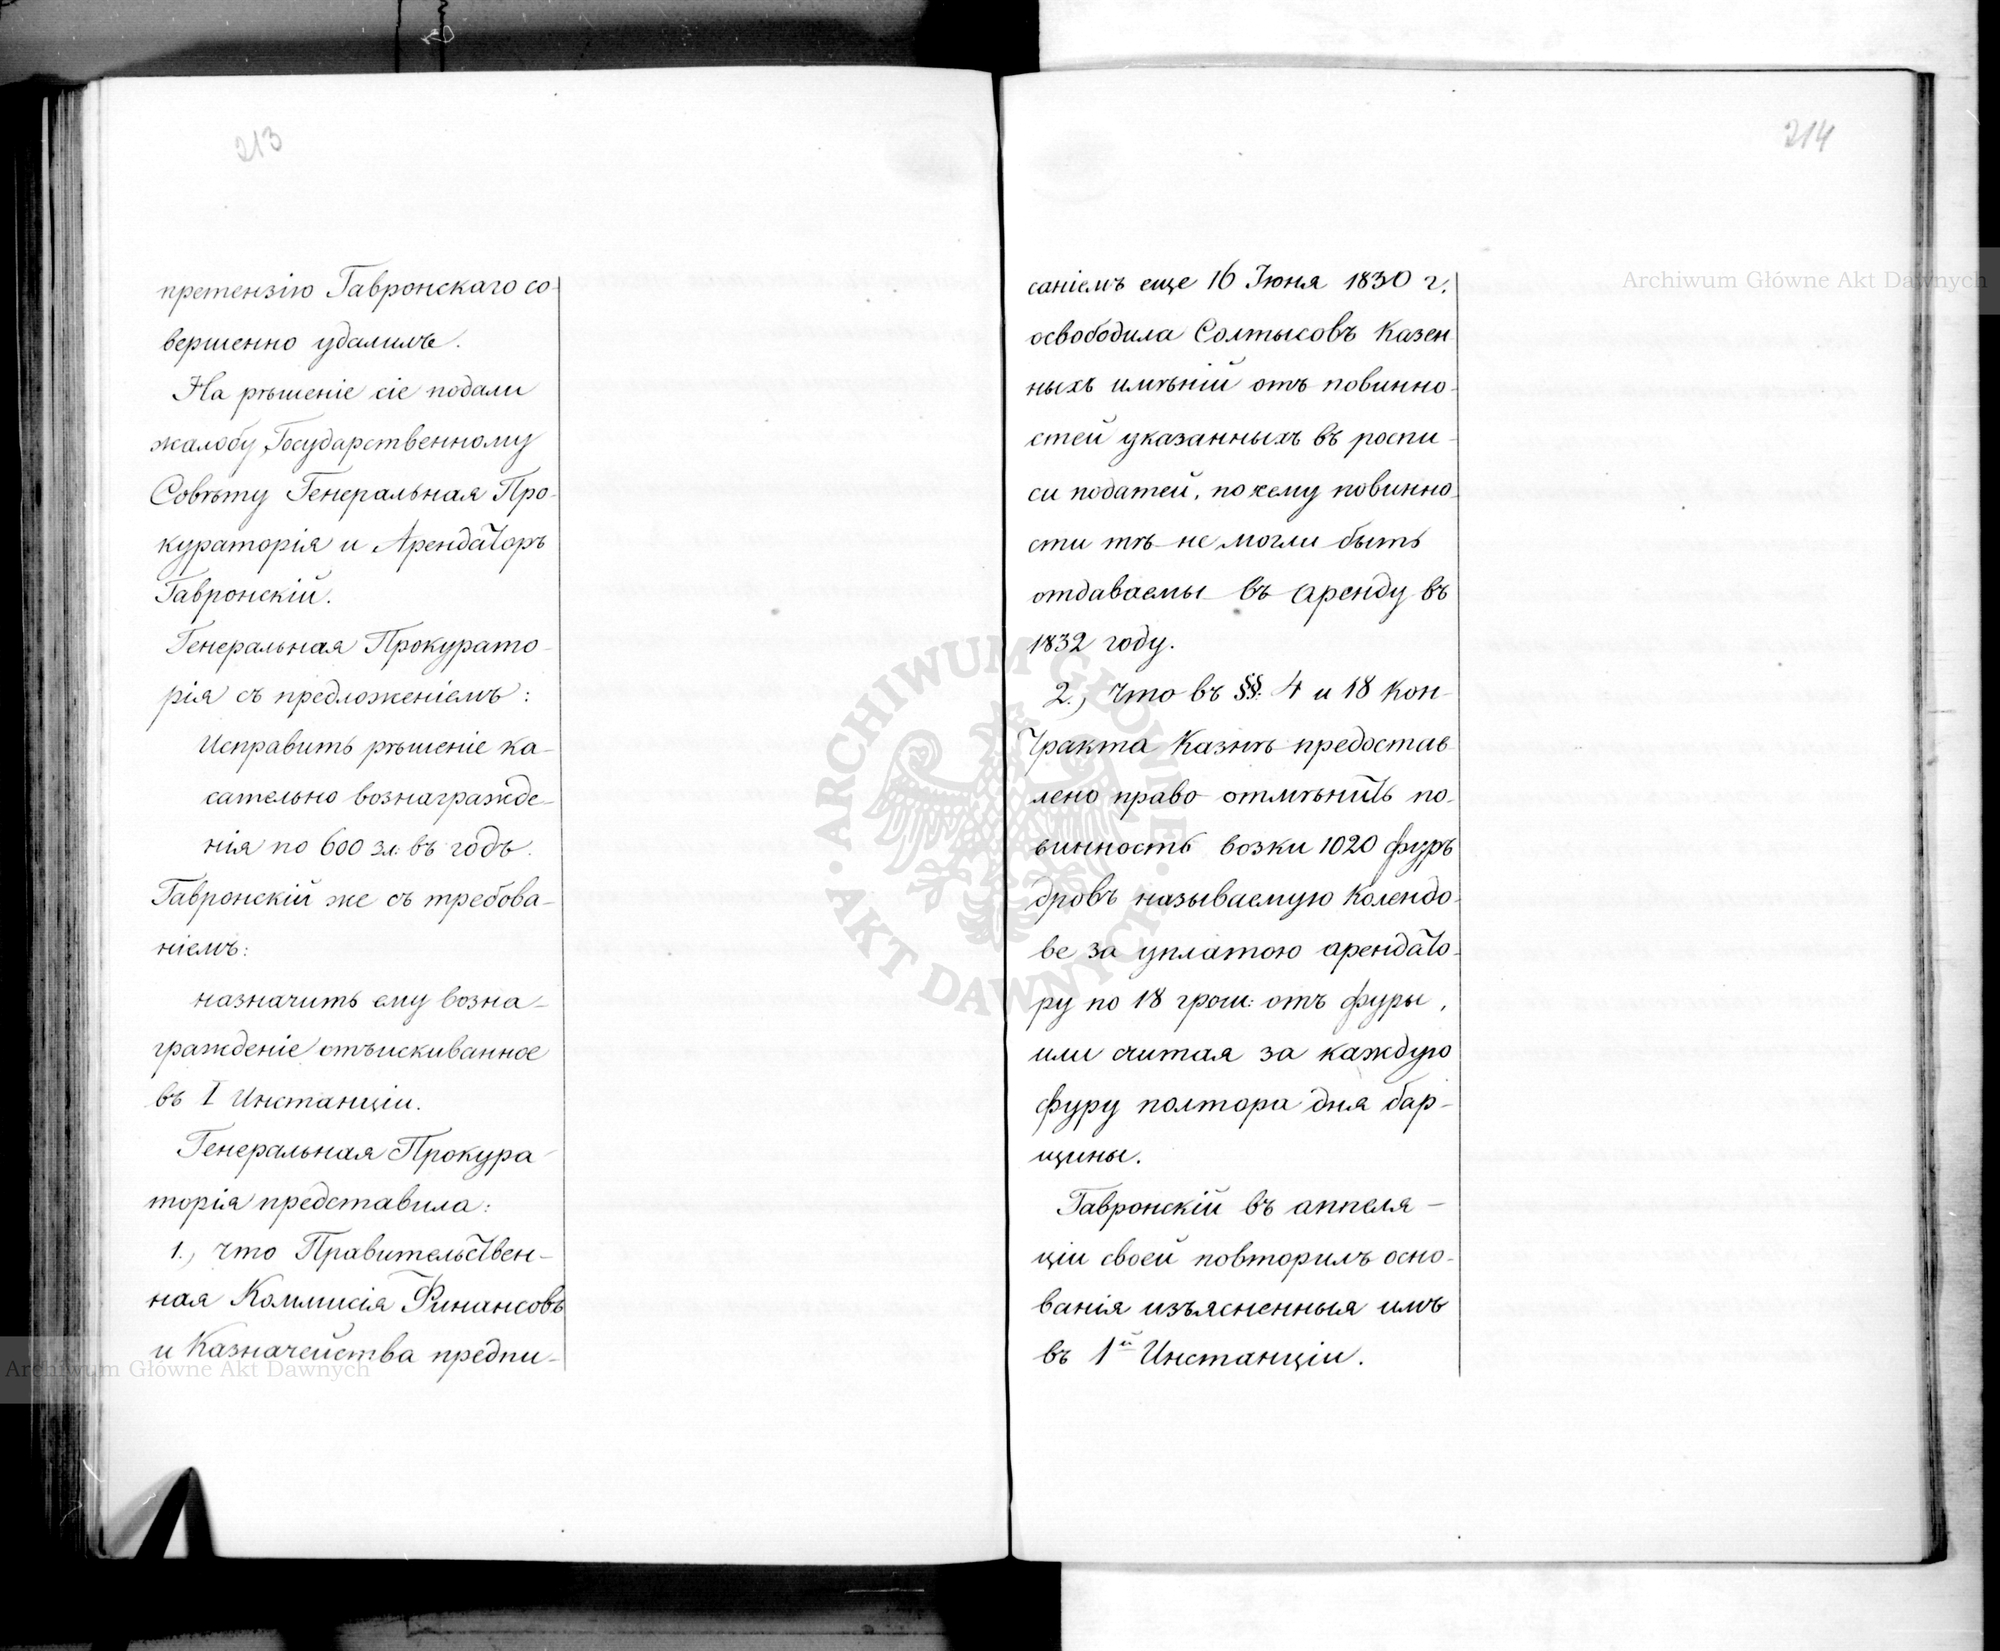 213
претензію Гавронскаго со-
вершенно удалилъ.
На рѣшеніе сіе подали
жалобу Государственному
Совѣту Генеральная Про-
кураторія и Арендаторъ
Гавронскій.
Генеральная Прокурато-
рія съ предложеніемъ:
Исправить рѣшеніе ка-
сательно вознагражде-
нія по 600 зл: въ годъ.
Гавронскій же съ требова-
ніемъ:
назначить ему возна-
гражденіе отъискиванное
въ I Инстанціи.
Генеральная Прокура-
торія представила:
1., что Правительствен-
ная Коммисія Финансовъ
и Казначейства предпи-
214
саніемъ еще 16 Іюня 1830 г.
освободила Солтысовъ Казен
ныхъ имѣній отъ повинно-
стей указанныхъ въ роспи-
си податей, почему повинно-
сти тѣ не могли быть
отдаваемы въ аренду въ
1832 году.
2., что въ §§. 4 и 18 кон-
тракта Казнѣ предостав
лено право отмѣнить по-
винность возки 1020 фуръ
дровъ называемую Колендо-
ве за уплатою арендато-
ру по 18 грош: отъ фуры,
или считая за каждую
фуру полтора дня бар-
щины.
Гавронскій въ аппеля-
ціи своей повторилъ осно-
ванія изъясненныя имъ
въ 1й Инстанціи.
Archiwum Główne Akt Dawnych
Archiwum Główne Akt Dawnych
ARCHIWUM GŁÓWNE AKT DAWNYCH